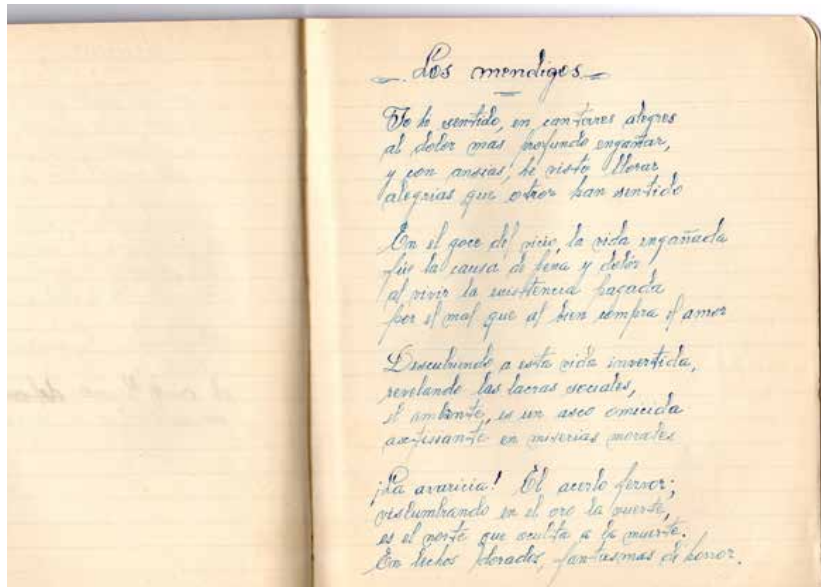 Los mendigos
Yo he sentido, en cantares alegres
al dolor mas profundo engañar,
y con ansias, he visto llorar
alegrias que otros han sentido
En el goce del vicio, la vida engañada
fué la causa de pena y dolór
al vivir la existencia pagada
por el mal que al bien compra el amor
Descubriendo a esta vida invertida,
revelando las lacras sociales,
el ambiente, es un asco omicida
asfissante en miserias morales
¡La avaricia! El acerbo fervor;
vislumbrando en el oro la suerte,
es el norte que oculta a la muerte.
En lechos dorados, fantasmas de horror.